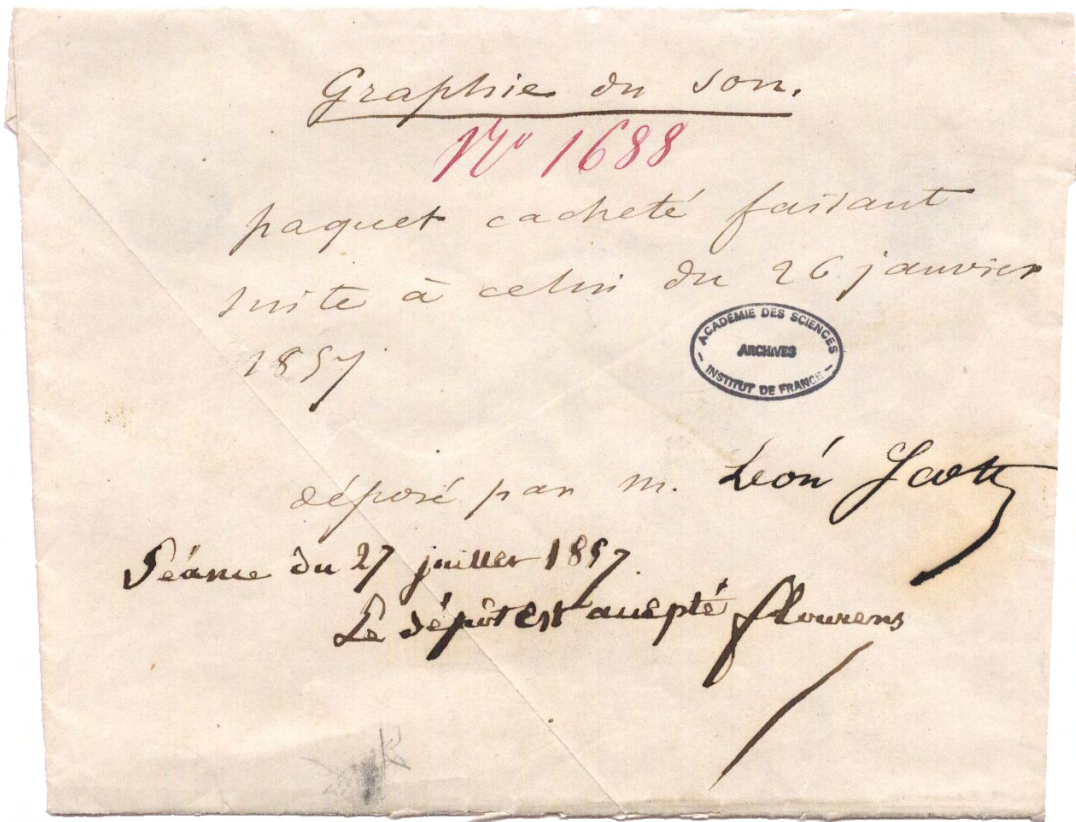 Graphie du son.
No 1688
paquet cacheté faisant
suite à celui du 26 janvier
1857
ACADÉMIE DES SCIENCES
ARCHIVES
INSTITUT DE FRANCE
déposé par m. Léon Scott
Séance du 27 juillet 1857.
Le dépôt est accepté flourens